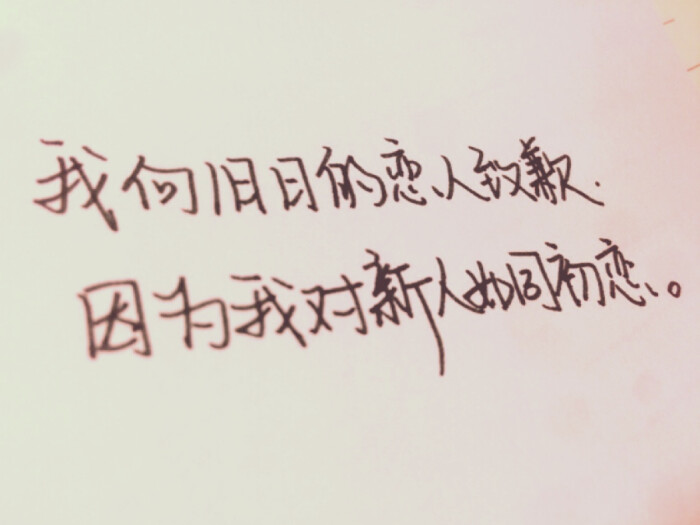 我向旧日的恋人致歉.
因为我对新人如同初恋。